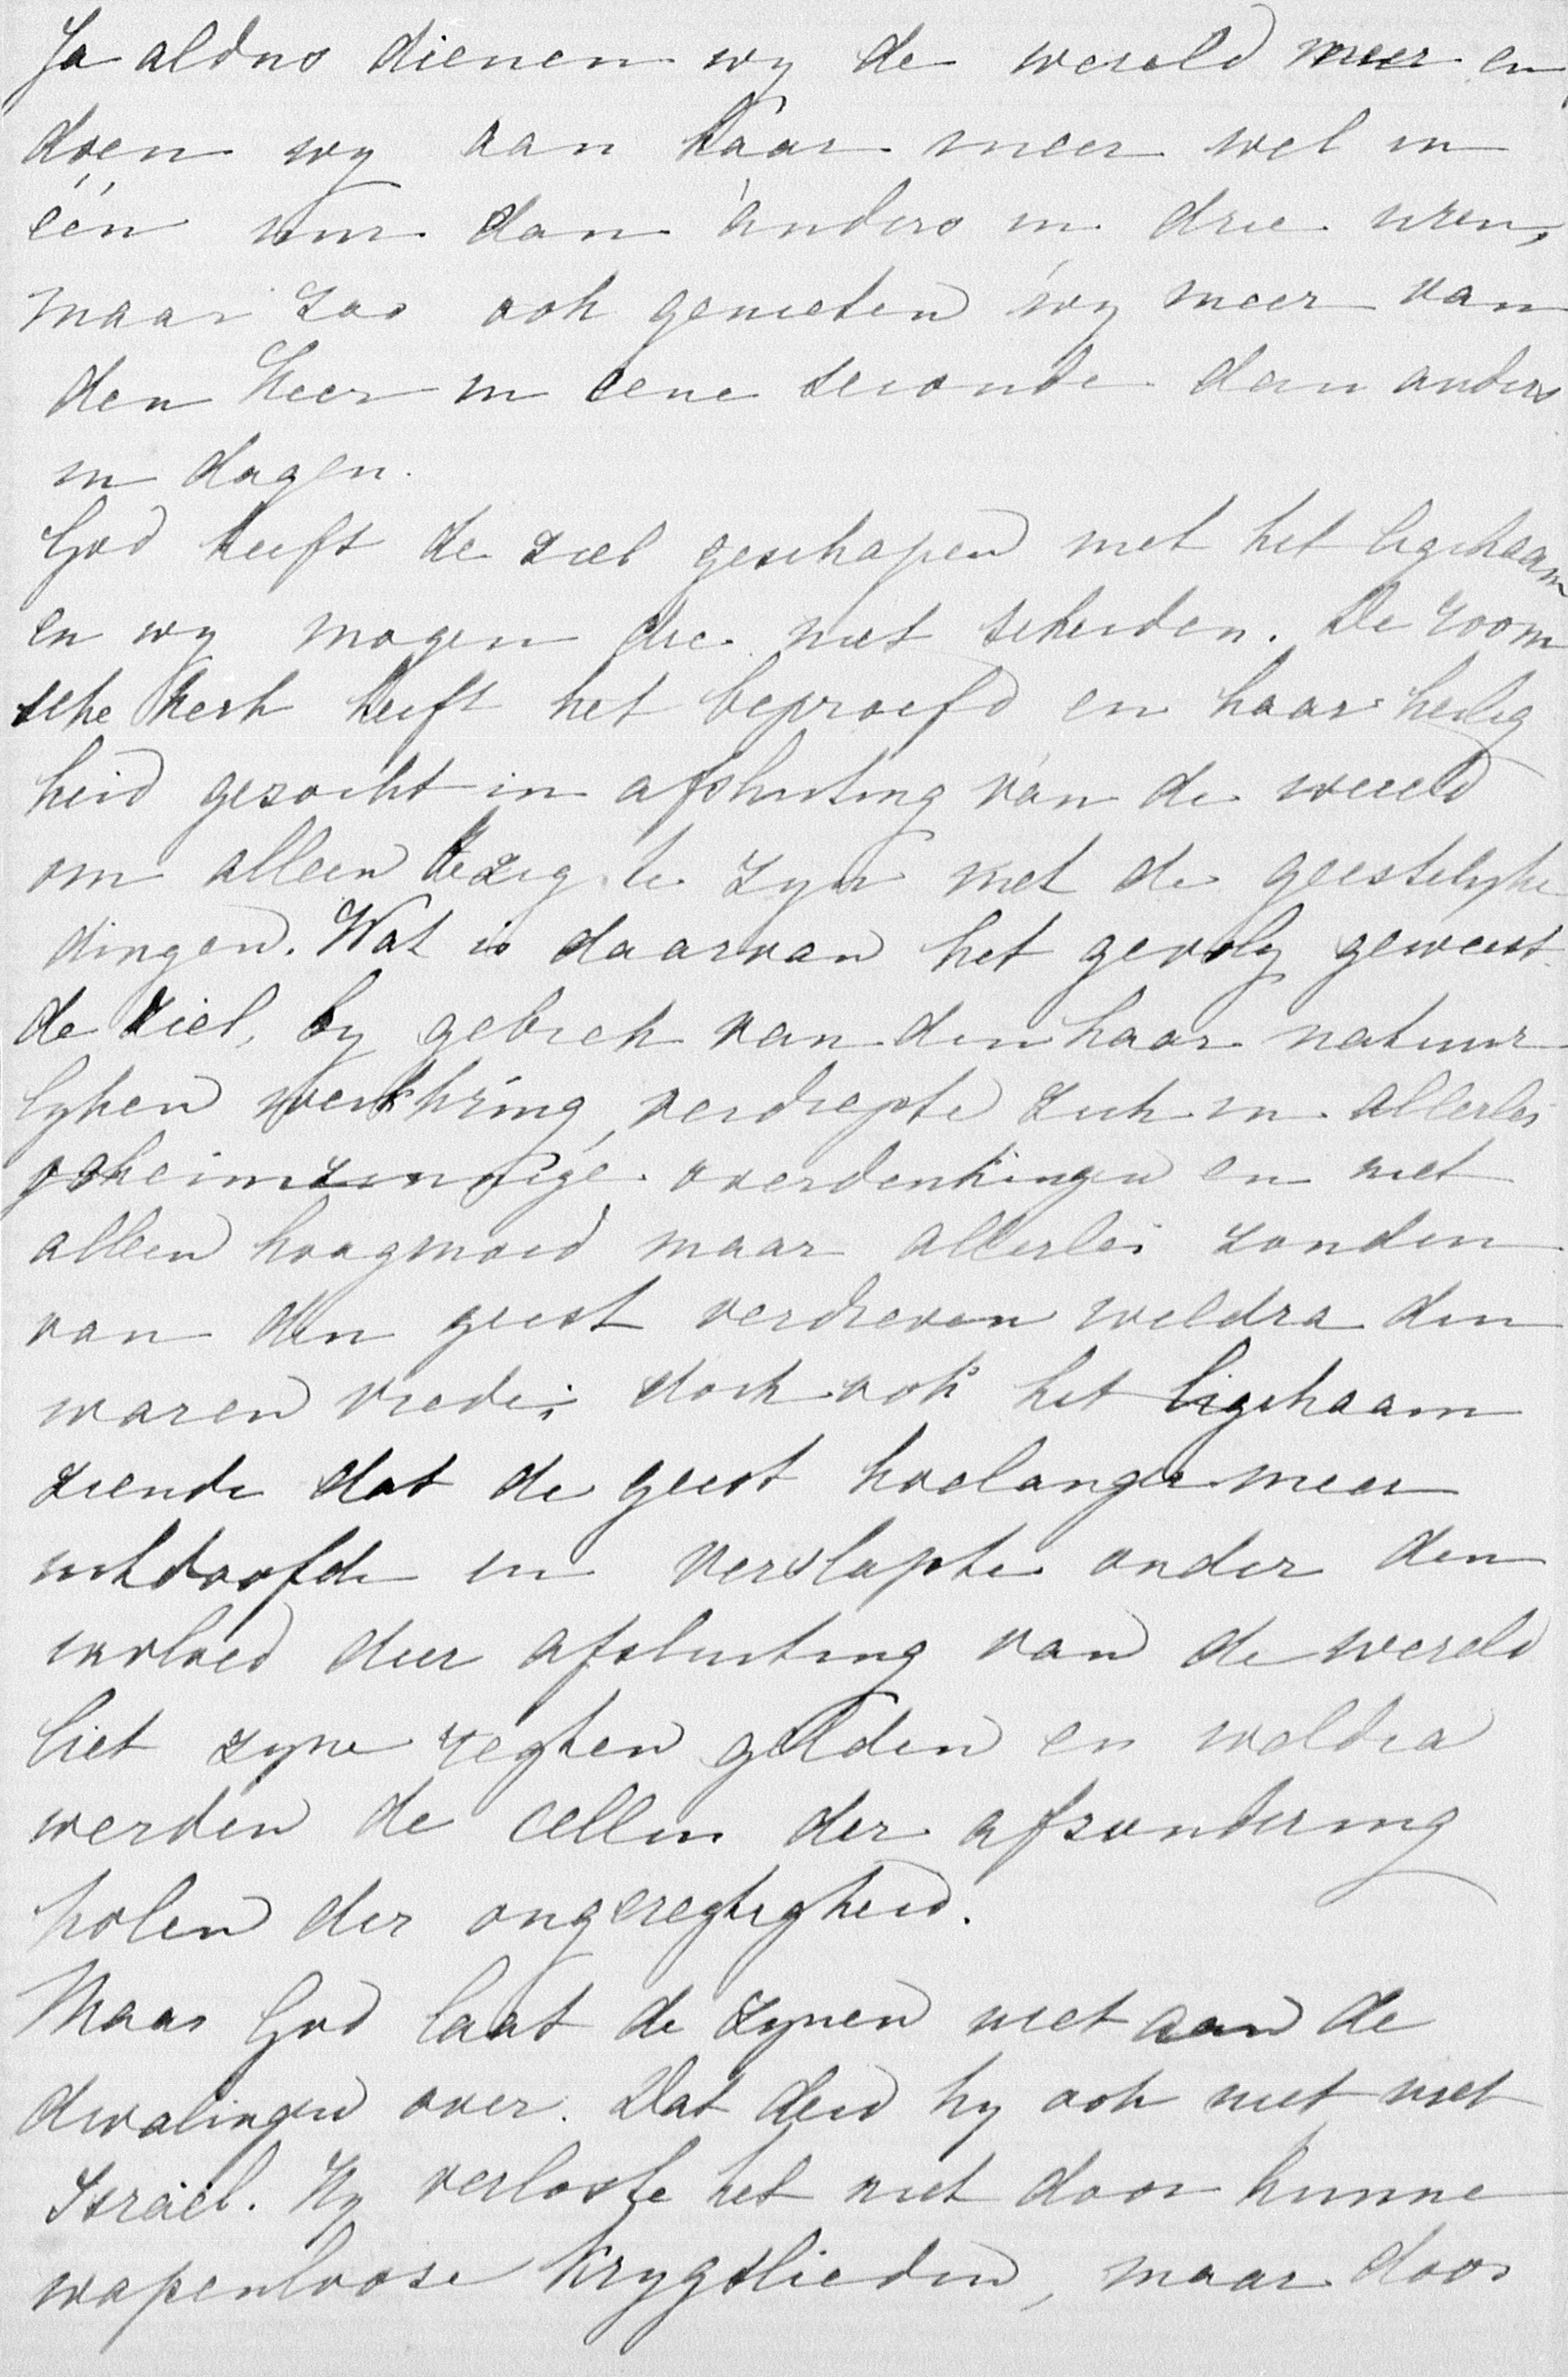 Ja aldus dienen wy de wereld meer en
doen wy aan haar meer wel in
één uur dan anders in drie uren,
maar zoo ook genieten wy meer van
den Heer in eene seconde dan anders
in dagen.
God heeft de ziel geschapen met het ligchaam
en wy mogen die niet scheiden. De room
sche kerk heeft het beproefd en haar heilig
heid gezocht in afsluiting van de wereld
om alleen bezig te zyn met de geestelyke
dingen. Wat is daarvan het gevolg geweest
de ziel, by gebrek van den haar natuur
lyken werkkring, verdiepte zich in allerlei
geheimzinnige overdenkingen en niet
alleen hoogmoed maar allerlei zonden
van den geest verdreven weldra den
waren vrede; doch ook het ligchaam
ziende dat de geest hoelanger meer
uitdoofde en verslapte onder den
invloed deer afsluiting van de wereld
liet zyne regten gelden en weldra
werden de cellen der afzondering
holen der ongeregtigheid.
Maar God laat de zynen niet aan de
dwalingen over. Dat deed hy ook niet met
Israël. Hy verloste het niet door hunne
wapenlooze krygslieden, maar door